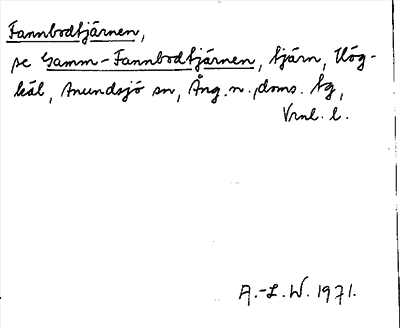 Fannbodtjärnen,
se Gamm-Fannbodtjärnen, tjärn, Hög-
bål, Anundsjö sn, Ång. n. doms. tg,
Vrnl. l.
A.-L. W. 1971.